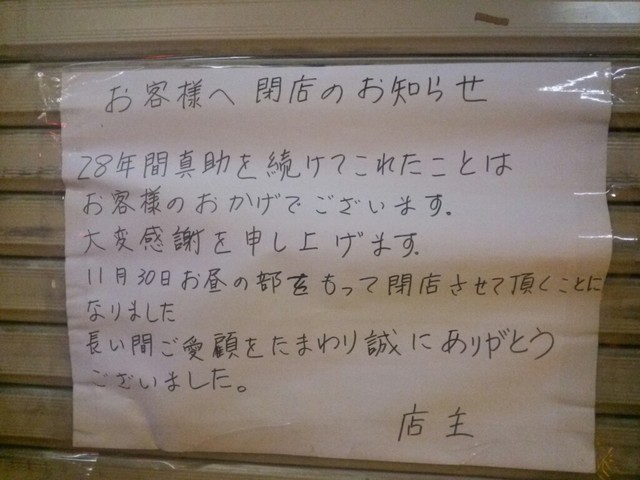 お客様へ 閉店のお知らせ
28年間真助を続けてこれたことは
お客様のおかげでございます.
大変感謝を申し上げます.
11月30日お昼の部をもって閉店させて頂くことに
なりました
長い間ご愛顧をたまわり誠にありがとう
ございました。
店主